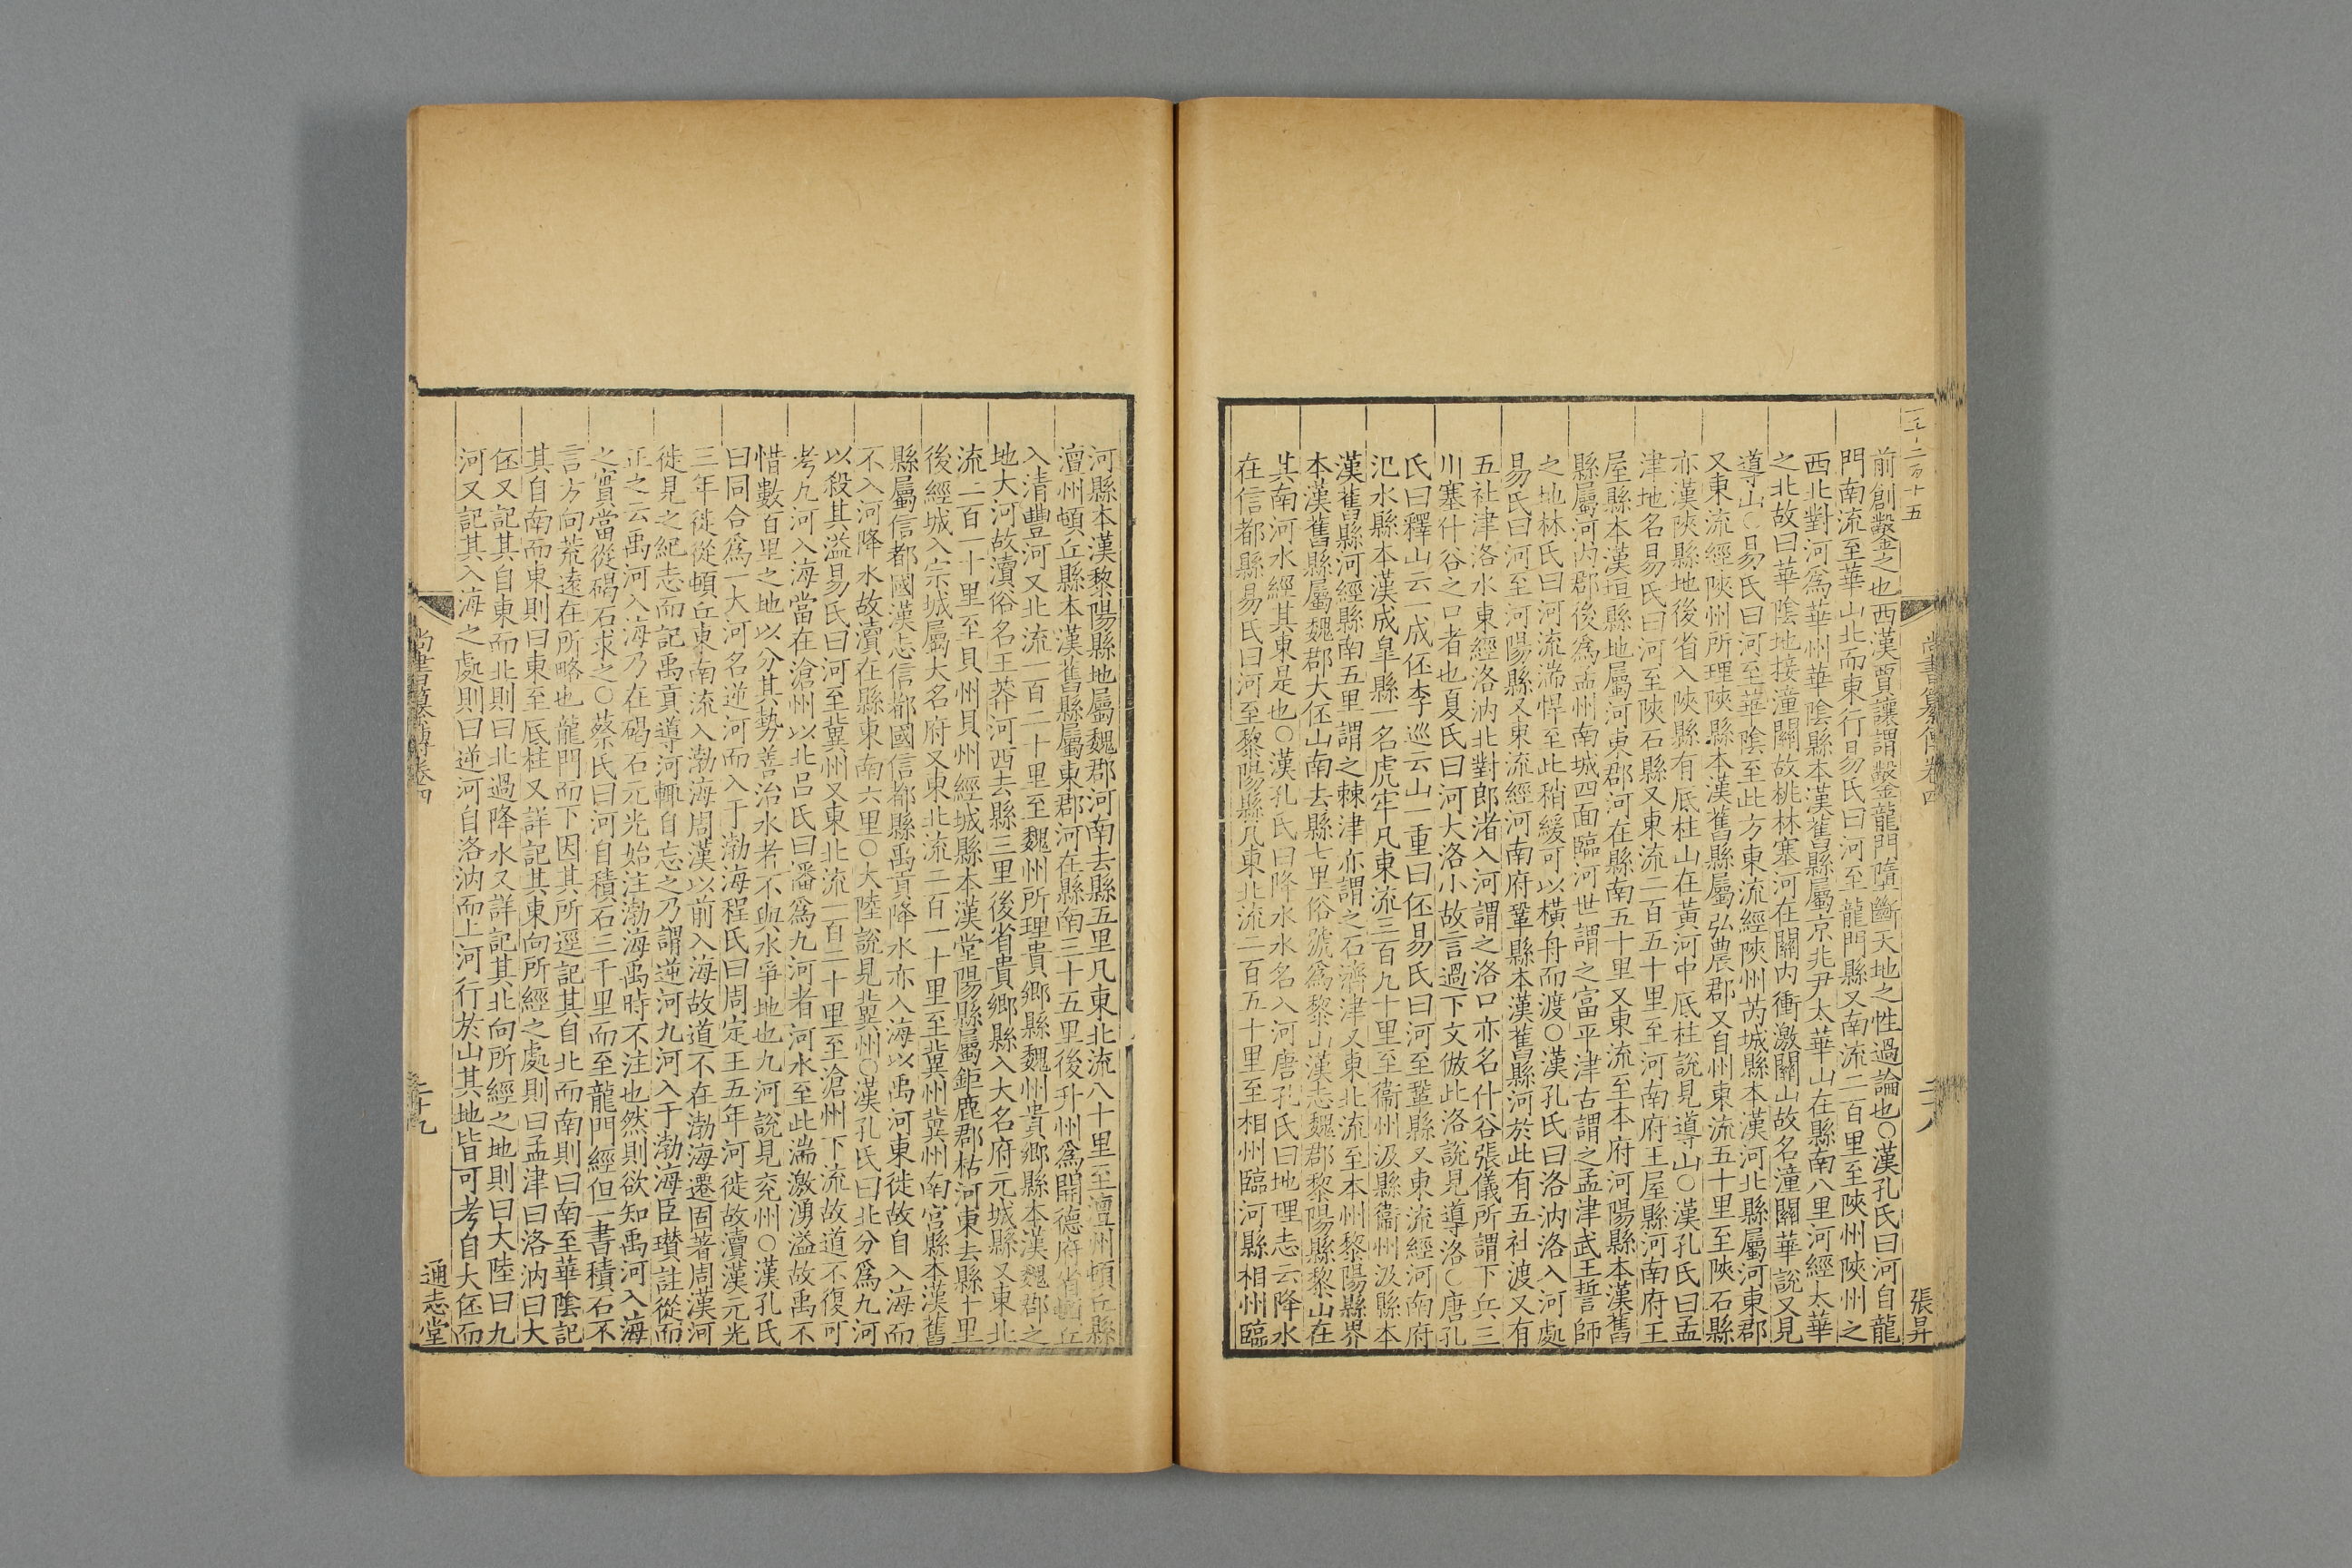 前創鑿之也西漢賈讓謂鑿龍門墮斷天地之性過論也○漢孔氏曰河自龍
門南流至華山北而東行易氏曰河至龍門縣又南流二百里至陝州陝州之
西北對河為華州華陰縣本漢舊縣屬京兆尹太華山在縣南八里河經太華
之北故曰華陰地接潼關故桃林塞河在關內衝激關山故名潼關華說又見
導山○易氏曰河至華陰至此方東流經陝州芮城縣本漢河北縣屬河東郡
又東流經陝州所理陝縣本漢舊縣屬弘農郡又自州東流五十里至陝石縣
亦漢陝縣地後省入陝縣有厎柱山在黃河中厎柱說見導山○漢孔氏曰孟
津地名易氏曰河至陝石縣又東流二百五十里至河南府王屋縣河南府王
屋縣本漢垣縣地屬河東郡河在縣南五十里又東流至本府河陽縣本漢舊
縣屬河內郡後為孟州南城四面臨河世謂之富平津古謂之孟津武王誓師
之地林氏曰河流湍悍至此稍緩可以橫舟而渡○漢孔氏曰洛汭洛入河處
易氏曰河至河陽縣又東流經河南府鞏縣本漢舊縣河於此有五社渡又有
五社津洛水東經洛汭北對郎渚入河謂之洛口亦名什谷張儀所謂下兵三
川塞什谷之口者也夏氏曰河大洛小故言過下文倣此洛說見導洛○唐孔
氏曰釋山云一成伾李巡云山一重曰伾易氏曰河至鞏縣又東流經河南府
汜水縣本漢成皐縣一名虎牢凡東流三百九十里至衞州汲縣衞州汲縣本
漢舊縣河經縣南五里謂之棘津亦謂之石濟津又東北流至本州黎陽縣界
本漢舊縣屬魏郡大伾山南去縣七里俗號為黎山漢志魏郡黎陽縣黎山在
其南河水經其東是也○漢孔氏曰降水水名入河唐孔氏曰地理志云降水
在信都縣易氏曰河至黎陽縣凡東北流二百五十里至相州臨河縣相州臨
尚書纂傳卷四
二十八
張昇
河縣本漢黎陽縣地屬魏郡河南去縣五里凡東北流八十里至澶州頓丘縣
澶州頓丘縣本漢舊縣屬東郡河在縣南三十五里後升州為開德府省頓丘
入清豐河又北流一百二十里至魏州所理貴鄉縣魏州貴鄉縣本漢魏郡之
地大河故瀆俗名王莽河西去縣三里後省貴鄉縣入大名府元城縣又東北
流二百一十里至貝州貝州經城縣本漢堂陽縣屬鉅鹿郡枯河東去縣十里
後經城入宗城屬大名府又東北流二百一十里至冀州冀州南宮縣本漢舊
縣屬信都國漢志信都國信都縣禹貢降水亦入海以禹河東徙故自入海而
不入河降水故瀆在縣東南六里○大陸說見冀州○漢孔氏曰北分為九河
以殺其溢易氏曰河至冀州又東北流二百二十里至滄州下流故道不復可
考九河入海當在滄州以北呂氏曰播為九河者河水至此湍激湧溢故禹不
惜數百里之地以分其勢善治水者不與水爭地也九河說見兖州○漢孔氏
曰同合為一大河名逆河而入于渤海程氏曰周定王五年河徙故瀆漢元光
三年徙從頓丘東南流入渤海周漢以前入海故道不在渤海遷固著周漢河
徙見之紀志而記禹貢導河輒自忘之乃謂逆河九河入于渤海臣瓚註從而
正之云禹河入海乃在碣石元光始注渤海禹時不注也然則欲知禹河入海
之實當從碣石求之○蔡氏曰河自積石三千里而至龍門經但一書積石不
言方向荒遠在所略也龍門而下因其所逕記其自北而南則曰南至華陰記
其自南而東則曰東至厎柱又詳記其東向所經之處則曰孟津曰洛汭曰大
伾又記其自東而北則曰北過降水又詳記其北向所經之地則曰大陸曰九
河又記其入海之處則曰逆河自洛汭而上河行於山其地皆可考自大伾而
尚書纂傳卷四
二十九
通志堂